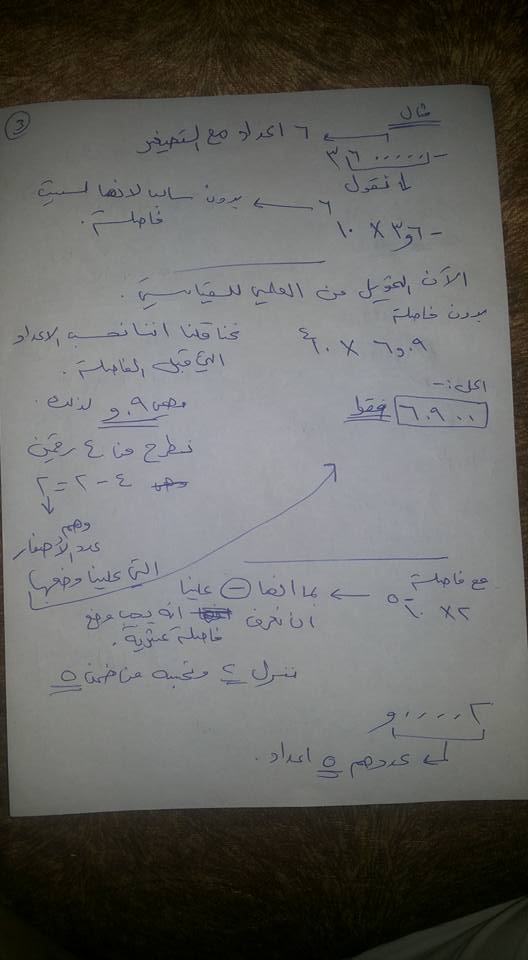 ③
مثال
٦ اعداد مع التصغير
- ٣٦٠٠٠٠٠
نقول
- ٦و٣ × ١٠^٦ بدون سالب لانها ليست
فاصلة.
الآن التحويل من العلمي للقياسي.
بدون فاصلة
٦٫٠٩ × ١٠^٤
نحنا قلنا اننا نحسب الاعداد
التي قبل الفاصلة.
الحل:-
٦٠٩٠٠ فقط
وهي ٠٩و لذلك
نطرح من ٤ رقمين
٤ - ٢ = ٢
وهم
عدد الأصفار
التي علينا وضعها
مع فاصلة
٢ × ١٠^-٥
بما انها (-) علينا
ان نعرف انه يجب وضع
فاصلة عشرية.
ننزل ٢ ونحسبه من ضمن ٥
و٠٠٠٠٢
عددهم ٥ اعداد.